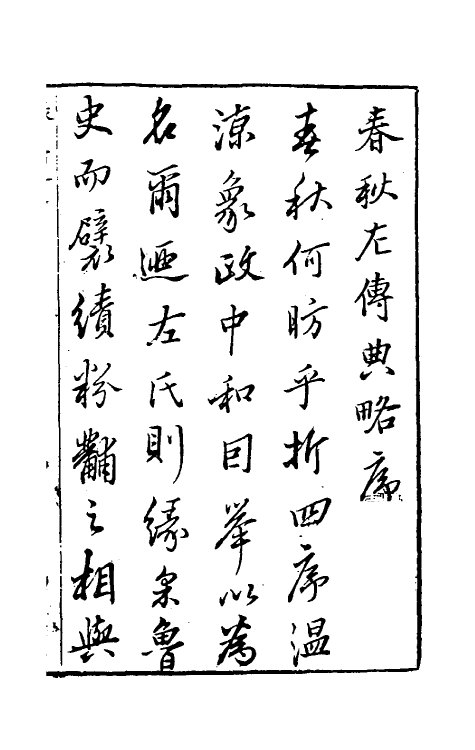 春秋左傳典略序
春秋何昉乎折四序温
涼象政中和因舉以為
名爾迺左氏則緣魯
史而襞績粉黼之相與